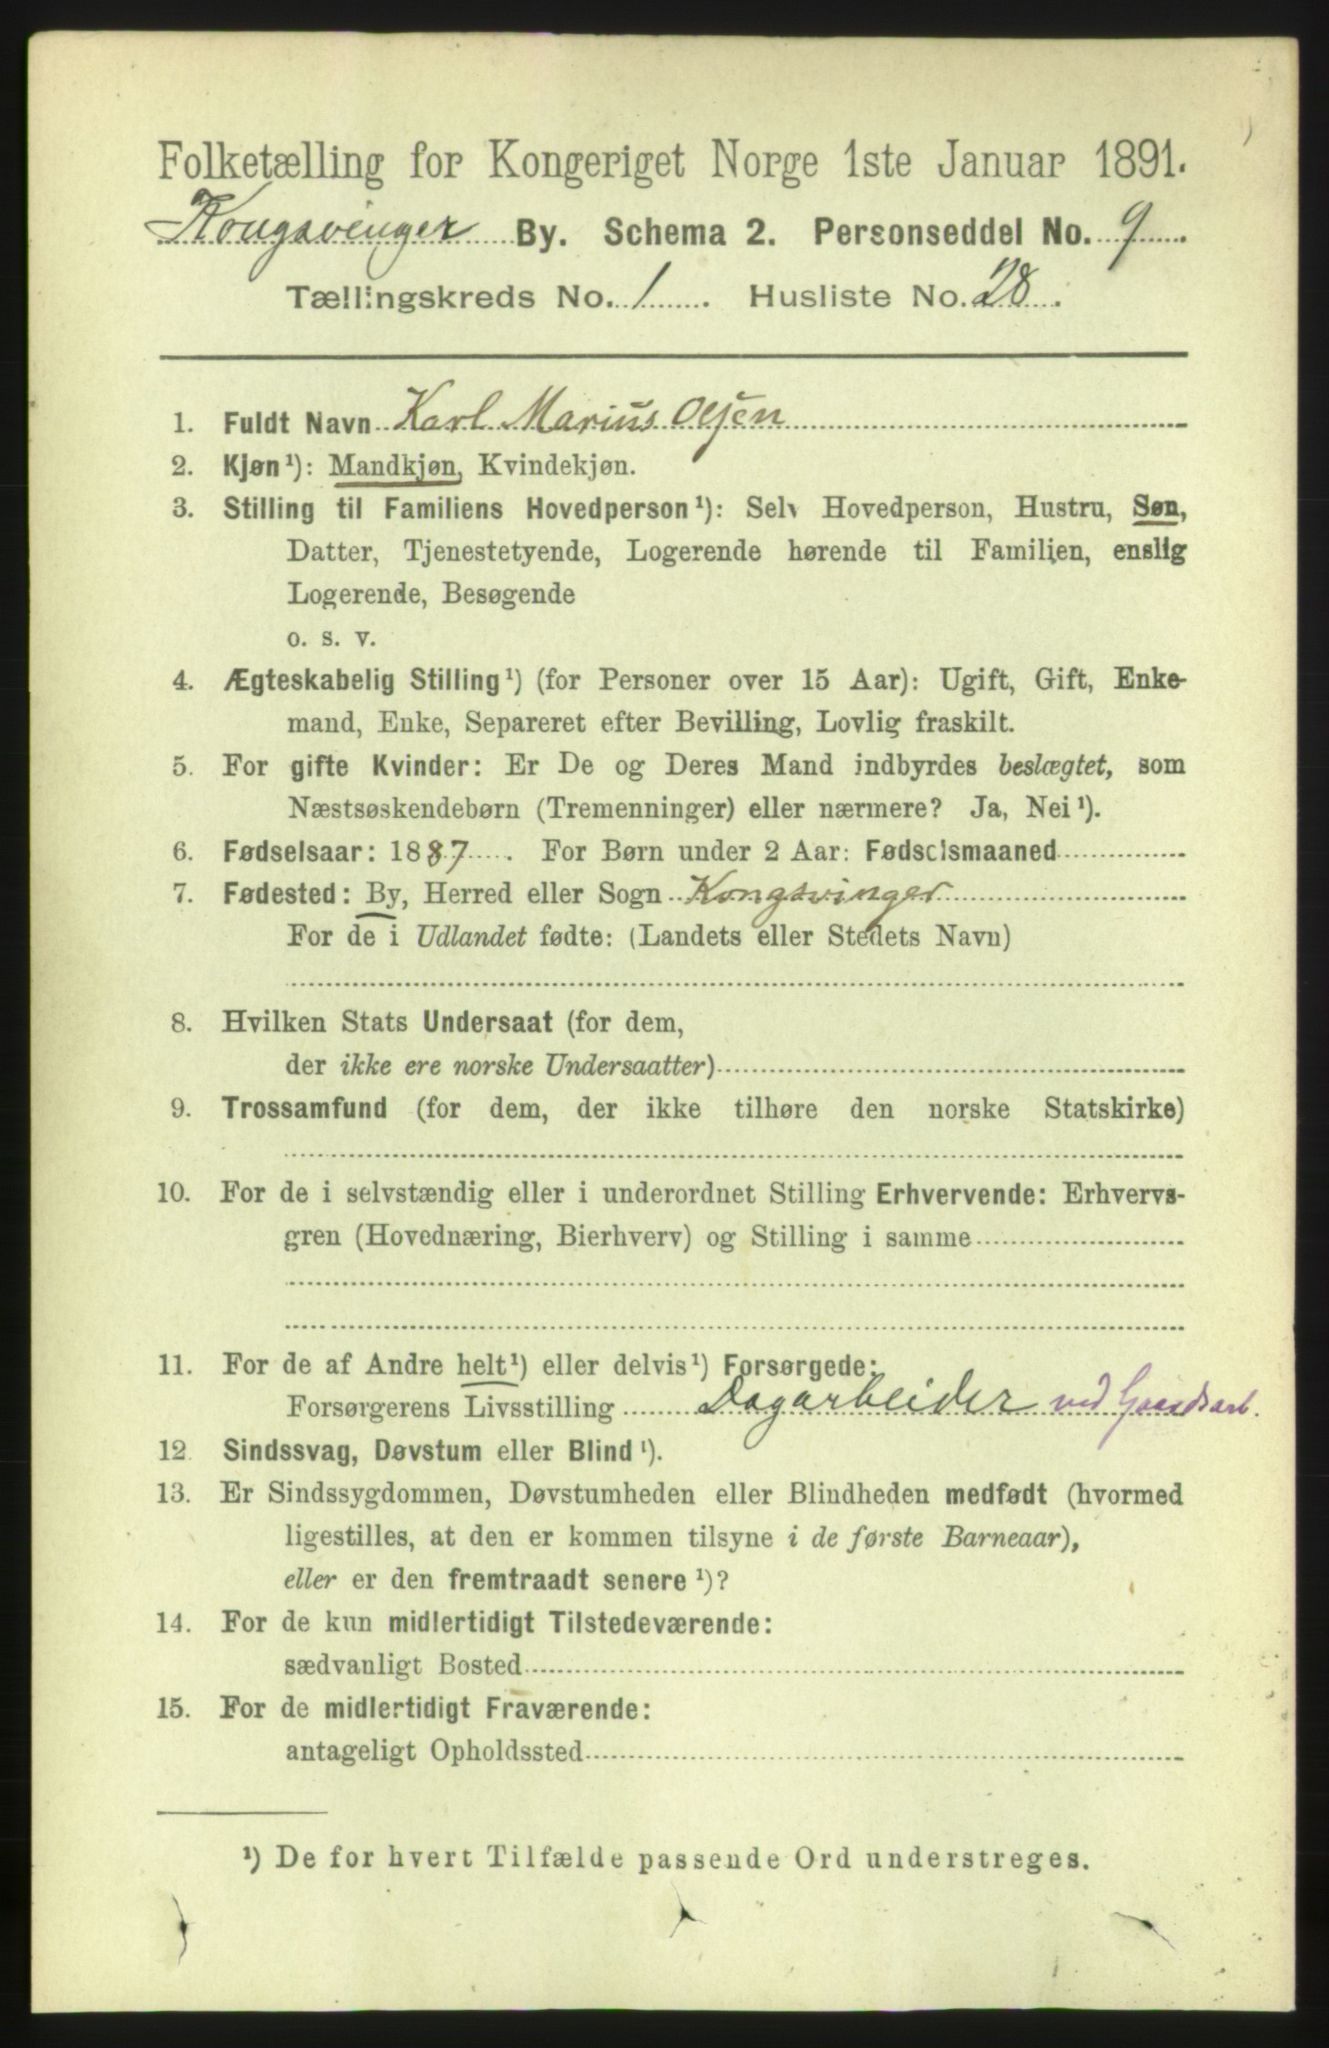 Folketælling for Kongeriget Norge 1ste Januar 1891.
Kongsvinger By. Schema 2. Personseddel No. 9
Tællingskreds No. 1. Husliste No. 28.
1. Fuldt Navn Karl Marius Olsen
2. Kjøn¹): Mandkjøn, Kvindekjøn.
3. Stilling til Familiens Hovedperson¹): Selv Hovedperson, Hustru, Søn,
Datter, Tjenestetyende, Logerende hørende til Familien, enslig
Logerende, Besøgende
o. s. v.
4. Ægteskabelig Stilling¹) (for Personer over 15 Aar): Ugift, Gift, Enke-
mand, Enke, Separeret efter Bevilling, Lovlig fraskilt.
5. For gifte Kvinder: Er De og Deres Mand indbyrdes beslægtet, som
Næstsøskendebørn (Tremenninger) eller nærmere? Ja, Nei¹).
6. Fødselsaar: 1887. For Børn under 2 Aar: Fødselsmaaned
7. Fødested: By, Herred eller Sogn Kongsvinger
For de i Udlandet fødte: (Landets eller Stedets Navn)
8. Hvilken Stats Undersaat (for dem,
der ikke ere norske Undersaatter)
9. Trossamfund (for dem, der ikke tilhøre den norske Statskirke)
10. For de i selvstændig eller i underordnet Stilling Erhvervende: Erhvervs-
gren (Hovednæring, Bierhverv) og Stilling i samme
11. For de af Andre helt¹) eller delvis¹) Forsørgede:
Forsørgerens Livsstilling Dagarbeider ved Gaardsarb.
12. Sindssvag, Døvstum eller Blind¹).
13. Er Sindssygdommen, Døvstumheden eller Blindheden medfødt (hvormed
ligestilles, at den er kommen tilsyne i de første Barneaar),
eller er den fremtraadt senere¹)?
14. For de kun midlertidigt Tilstedeværende:
sædvanligt Bosted
15. For de midlertidigt Fraværende:
antageligt Opholdssted
¹) De for hvert Tilfælde passende Ord understreges.